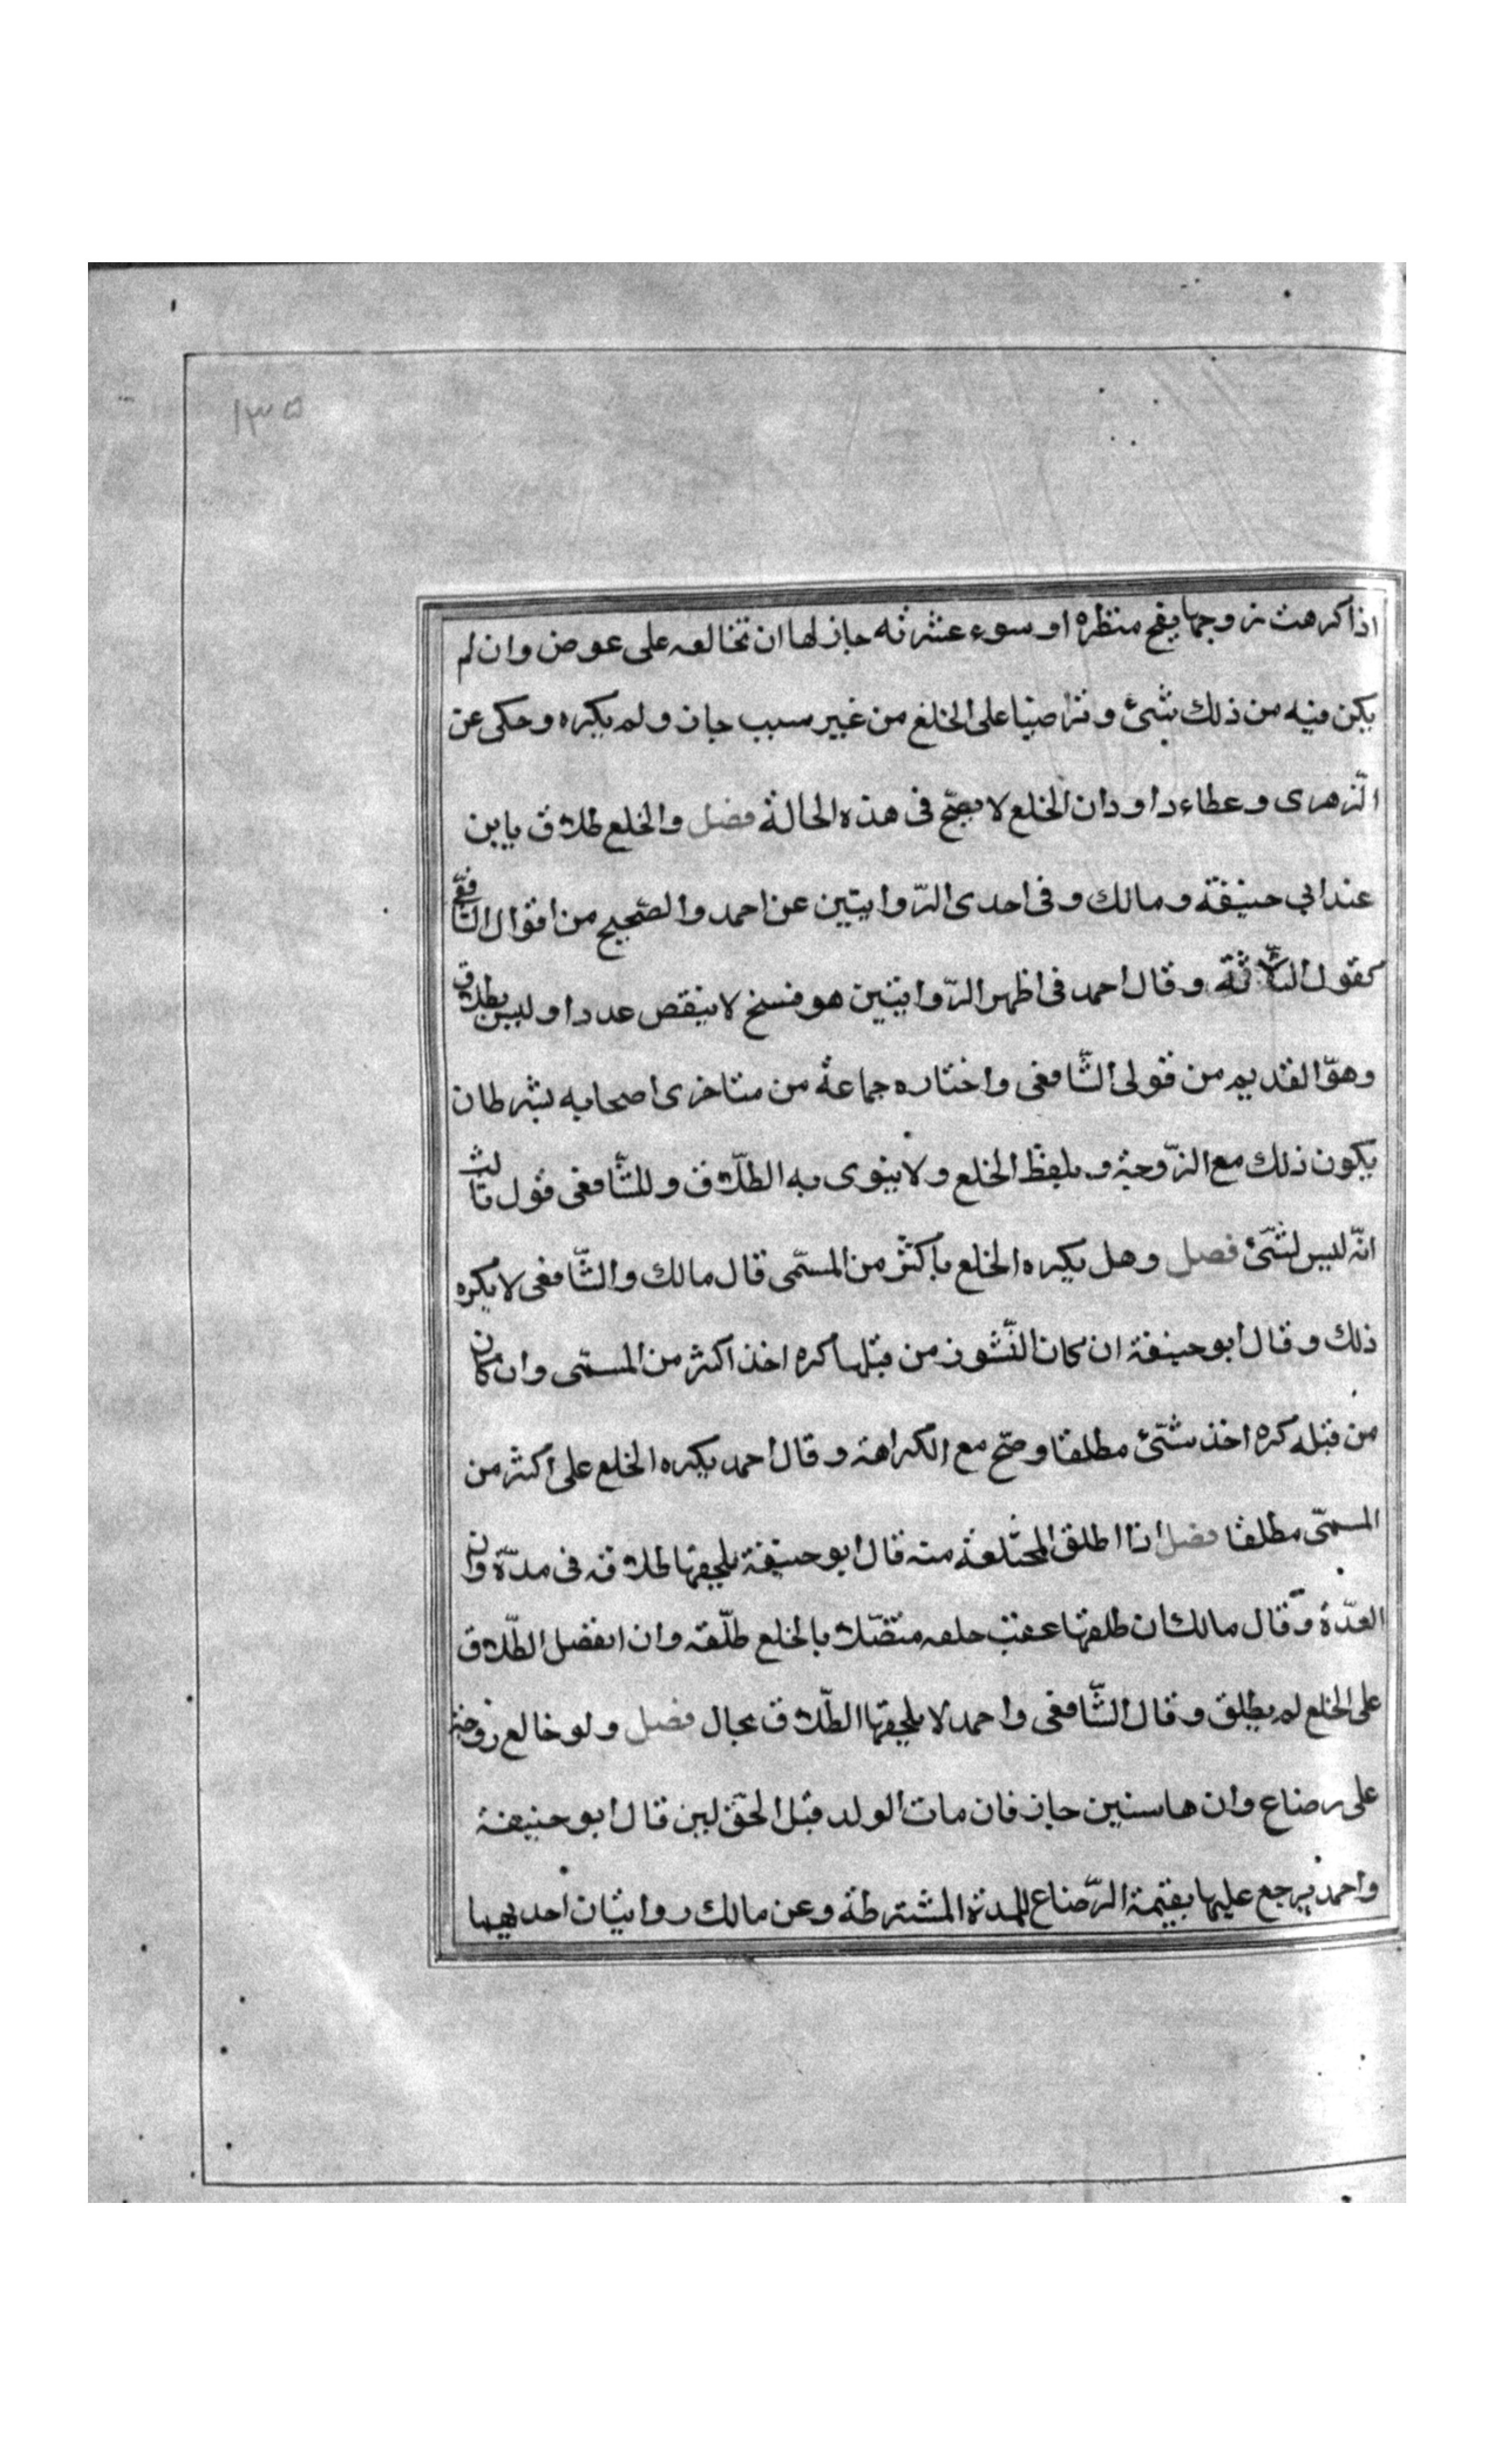 ١٣٥
اذا كرهت زوجها بقبح منظره او سوء عشرته جاز لها ان تخالعه على عوض وان لم
يكن فيه من ذلك شئ وتراضيا على الخلع من غير سبب جاز ولم يكره وحكى عن
الزهرى وعطاء داود ان الخلع لا يصحّ فى هذه الحالة فصل والخلع طلاق باين
عند ابي حنيفة ومالك وفى احدى الرّوايتين عن احمد والصّحيح من اقوال الشّافعى
كقول الثّلاثة وقال احمد فى اظهر الرّوايتين هو فسخ لا ينقص عددا وليس بطلاق
وهو القديم من قولى الشّافعى واختاره جماعة من متاخرى اصحابه بشرط ان
يكون ذلك مع الزّوجة وبلفظ الخلع ولا ينوى به الطلّاق وللشّافعى قول ثالث
انّه ليس لشئ فصل وهل يكره الخلع باكثر من المسمّى قال مالك والشّافعى لا يكره
ذلك وقال ابو حنيفة ان كان النّشوز من قبلها كره اخذ اكثر من المسمى وان كان
من قبله كره اخذ شئ مطلقا وصحّ مع الكراهة وقال احمد يكره الخلع على اكثر من
المسمّى مطلقا فصل اذا اطلق المختلعة منه قال ابو حنيفة يلحقها طلاقه فى مدّة وان
العدّة وقال مالك ان طلقها عقب خلعه متصّلا بالخلع طلّقه وان انفصل الطّلاق
على الخلع لم يطلق وقال الشّافعى واحمد لا يلحقها الطّلاق بحال فصل ولو خالع زوجته
على رضاع وان ها سنين جاز فان مات الولد قبل الحق لين قال ابو حنيفة
واحمد يرجع عليها بقيمة الرّضاع للمدة المشترطة وعن مالك روايتان احديهما